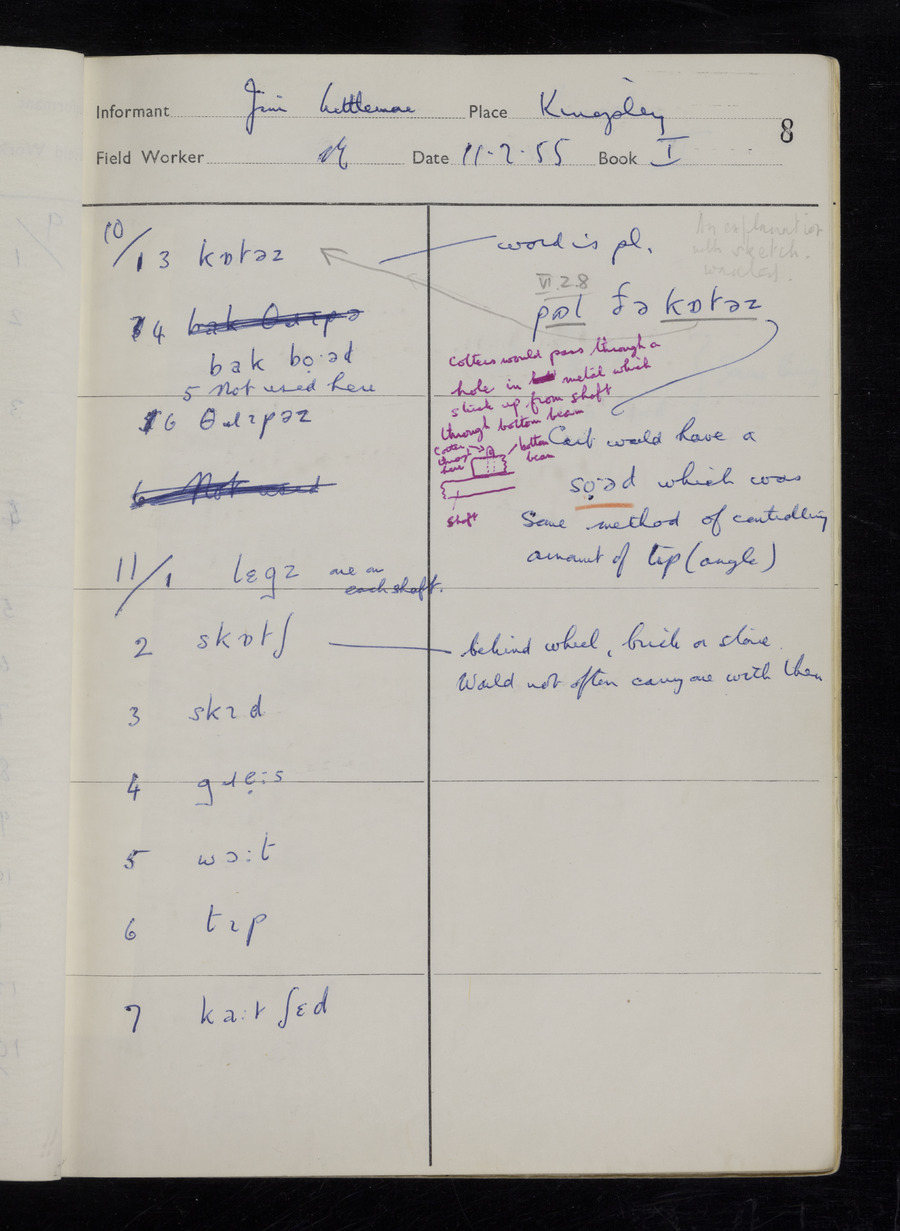 Informant Jim Place Kingsley
8
Field Worker Date 11.2.55 Book I
10/13 kɒtəz
word is pl.
An explanation
with sketch.
wanted.
VI.2.8
pɒl ðə kɒtəz
14 bak θɹɪpə
bak bo̞·əd
5 Not used here
16 θɹɪpəz
6 Not used
cotters would pass through a
hole in metal which
stuck up from shaft
through bottom beam
cotter
thro'
here
bottom
beam
shaft
Cart would have a
so̞·əd which was
Some method of controlling
amount of tip (angle)
11/1 lɛgz one on
each shaft.
2 skɒtʃ
behind wheel, brick or stone.
Would not often carry one with them
3 skɪd
4 gɹe̞:s
5 wɔ:t
6 tɪp
7 ka:t ʃɛd